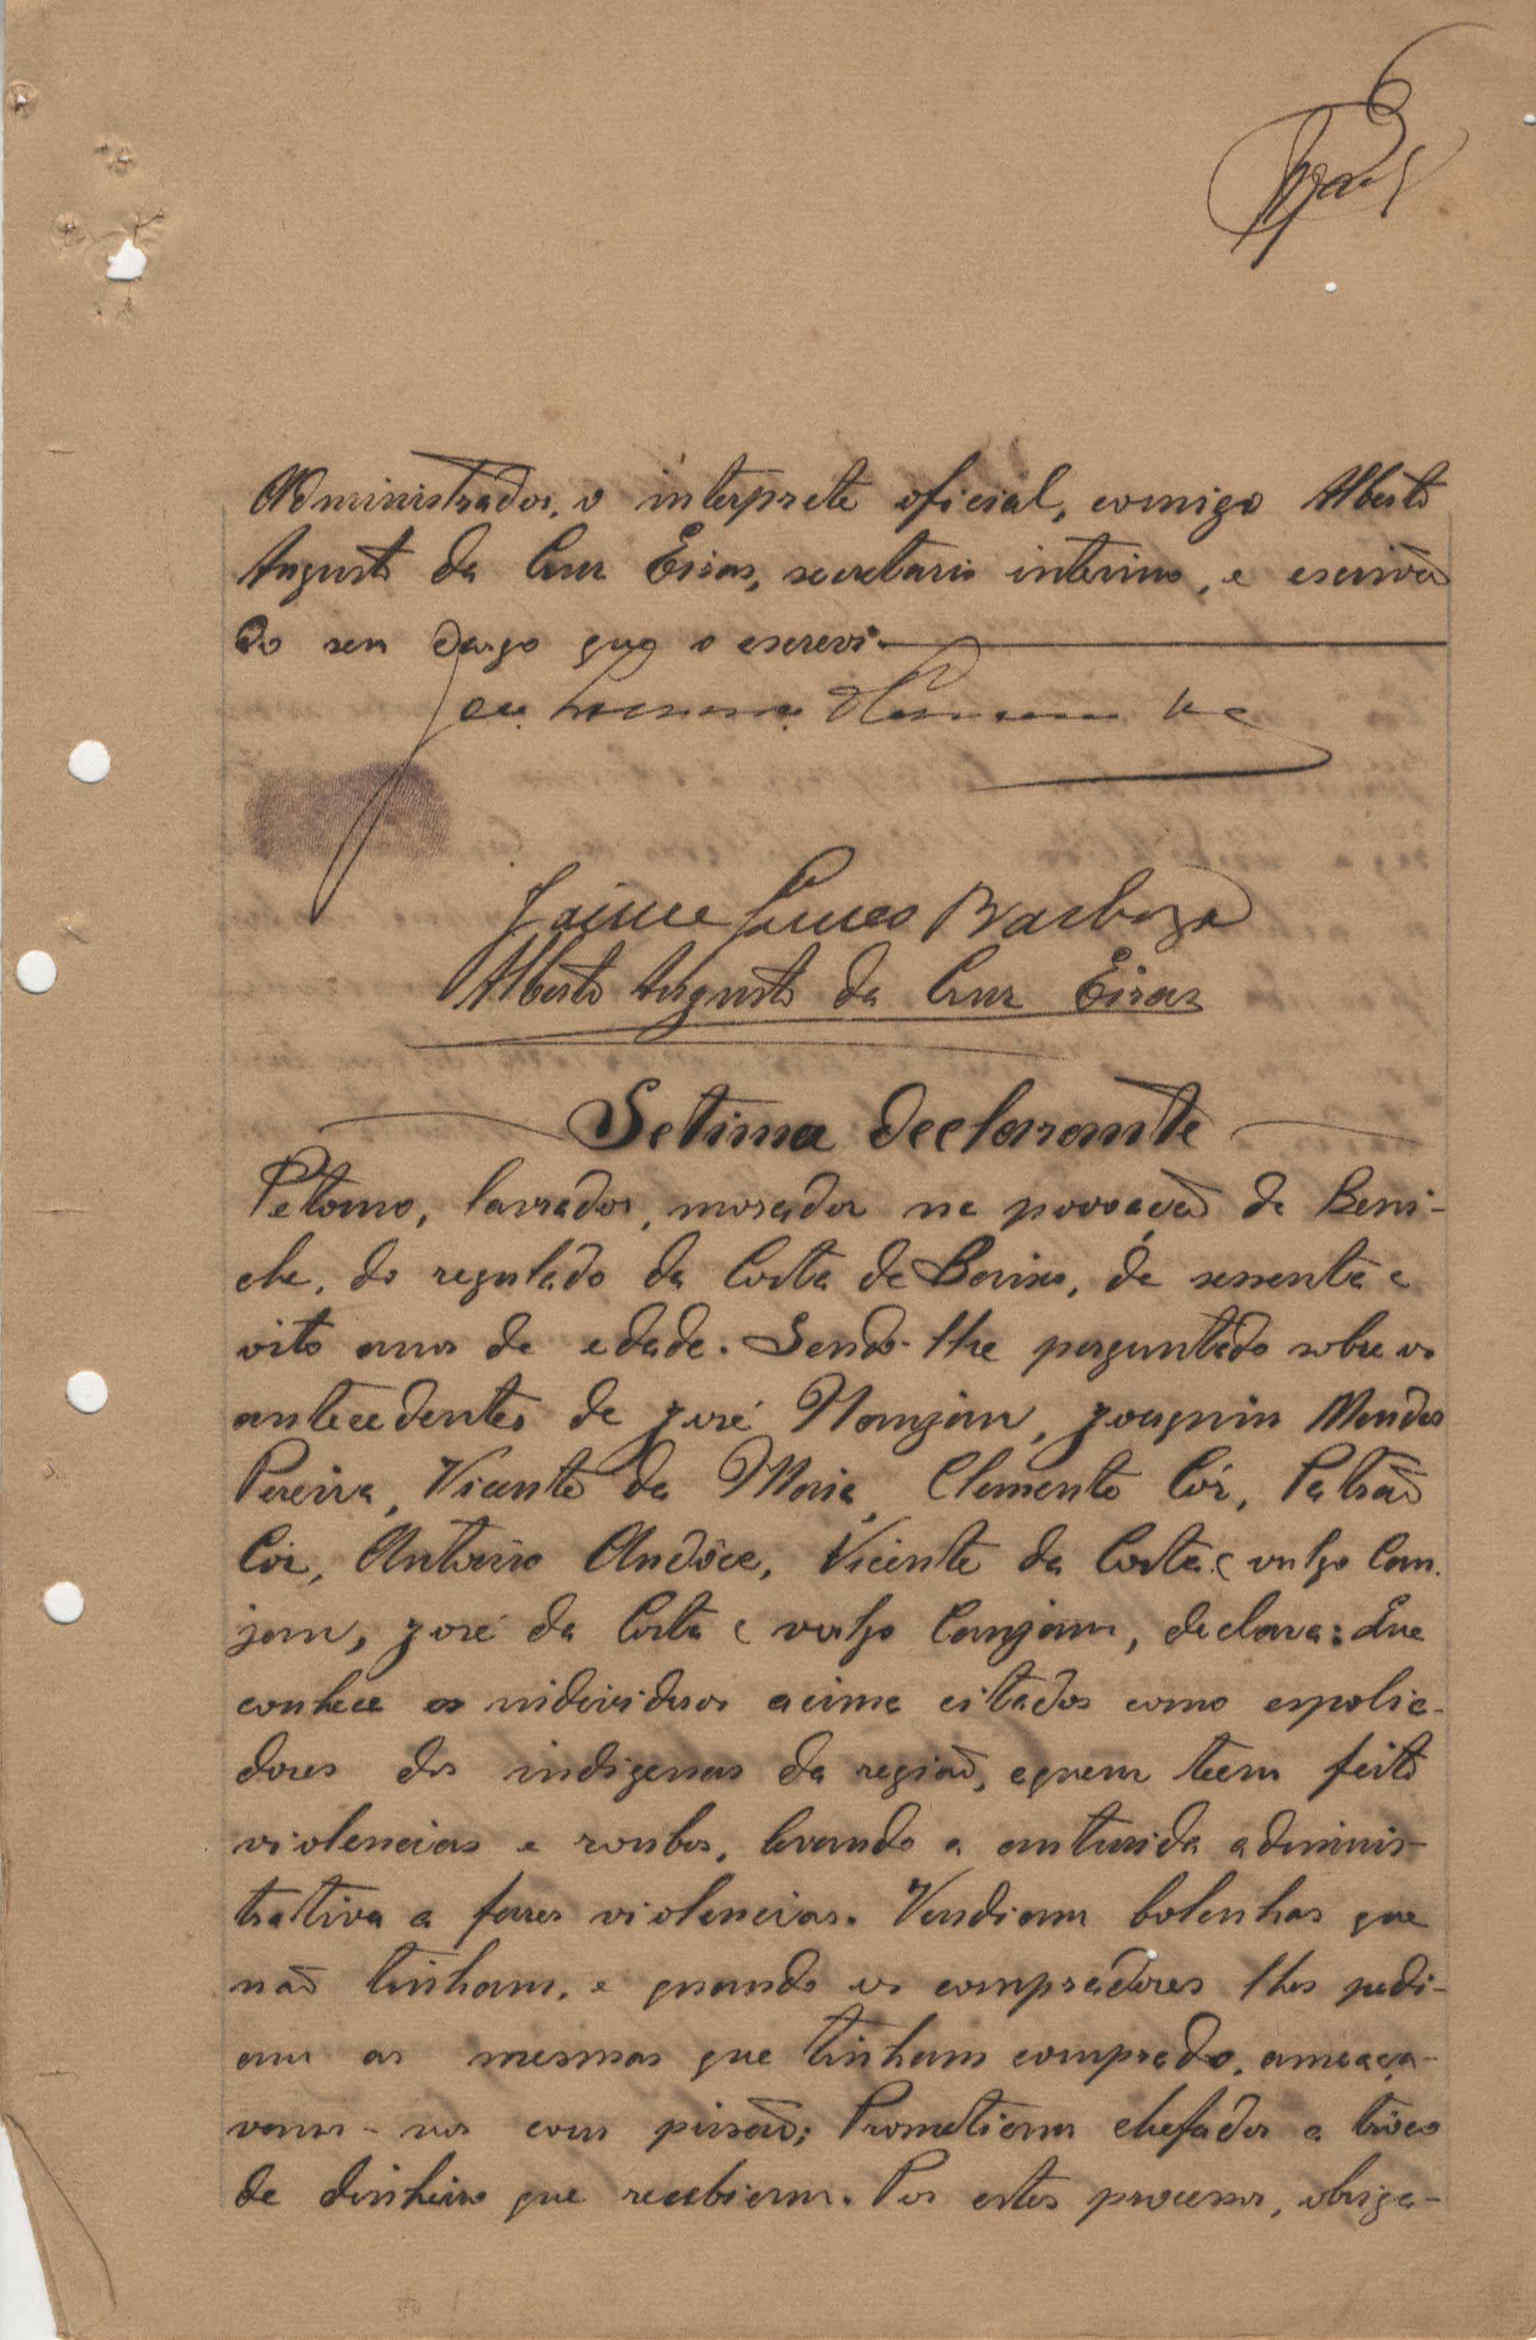 6
Administrador, o interprete oficial, comigo Alberto
Augusto da Cruz Eiras, secretario interino, e escrivão
do seu cargo que o escrevi.
Jaime Lumes Barboza
Alberto Augusto da Cruz Eiras
Setima declarante
Petomo, lavrador, morador na povoação de Beni-
che, do regulado da Costa de Baixo, de sessenta e
oito anos de edade. Sendo-lhe perguntado sobre os
antecedentes de José Nanjam, Joaquim Mendes
Pereira, Vicente da Maia, Clemente Cór, Patrão
Cór, António Andôce, Vicente da Costa (vulgo Can-
jam, José da Costa (vulgo Canjam, declara: Que
conhece os individuos acima citados como espolia-
dores dos indigenas da região, a quem teem feito
violencias e roubos, levando a autorida adminis-
trativa a fazer violencias. Vendiam bolanhas que
não tinham, e quando os compradores lhes pedi-
am as mesmas que tinham comprado, ameaça-
vam-nos com prisão; Prometiam chefados a trôco
de dinheiro que recebiam. Por estes processos, obriga-